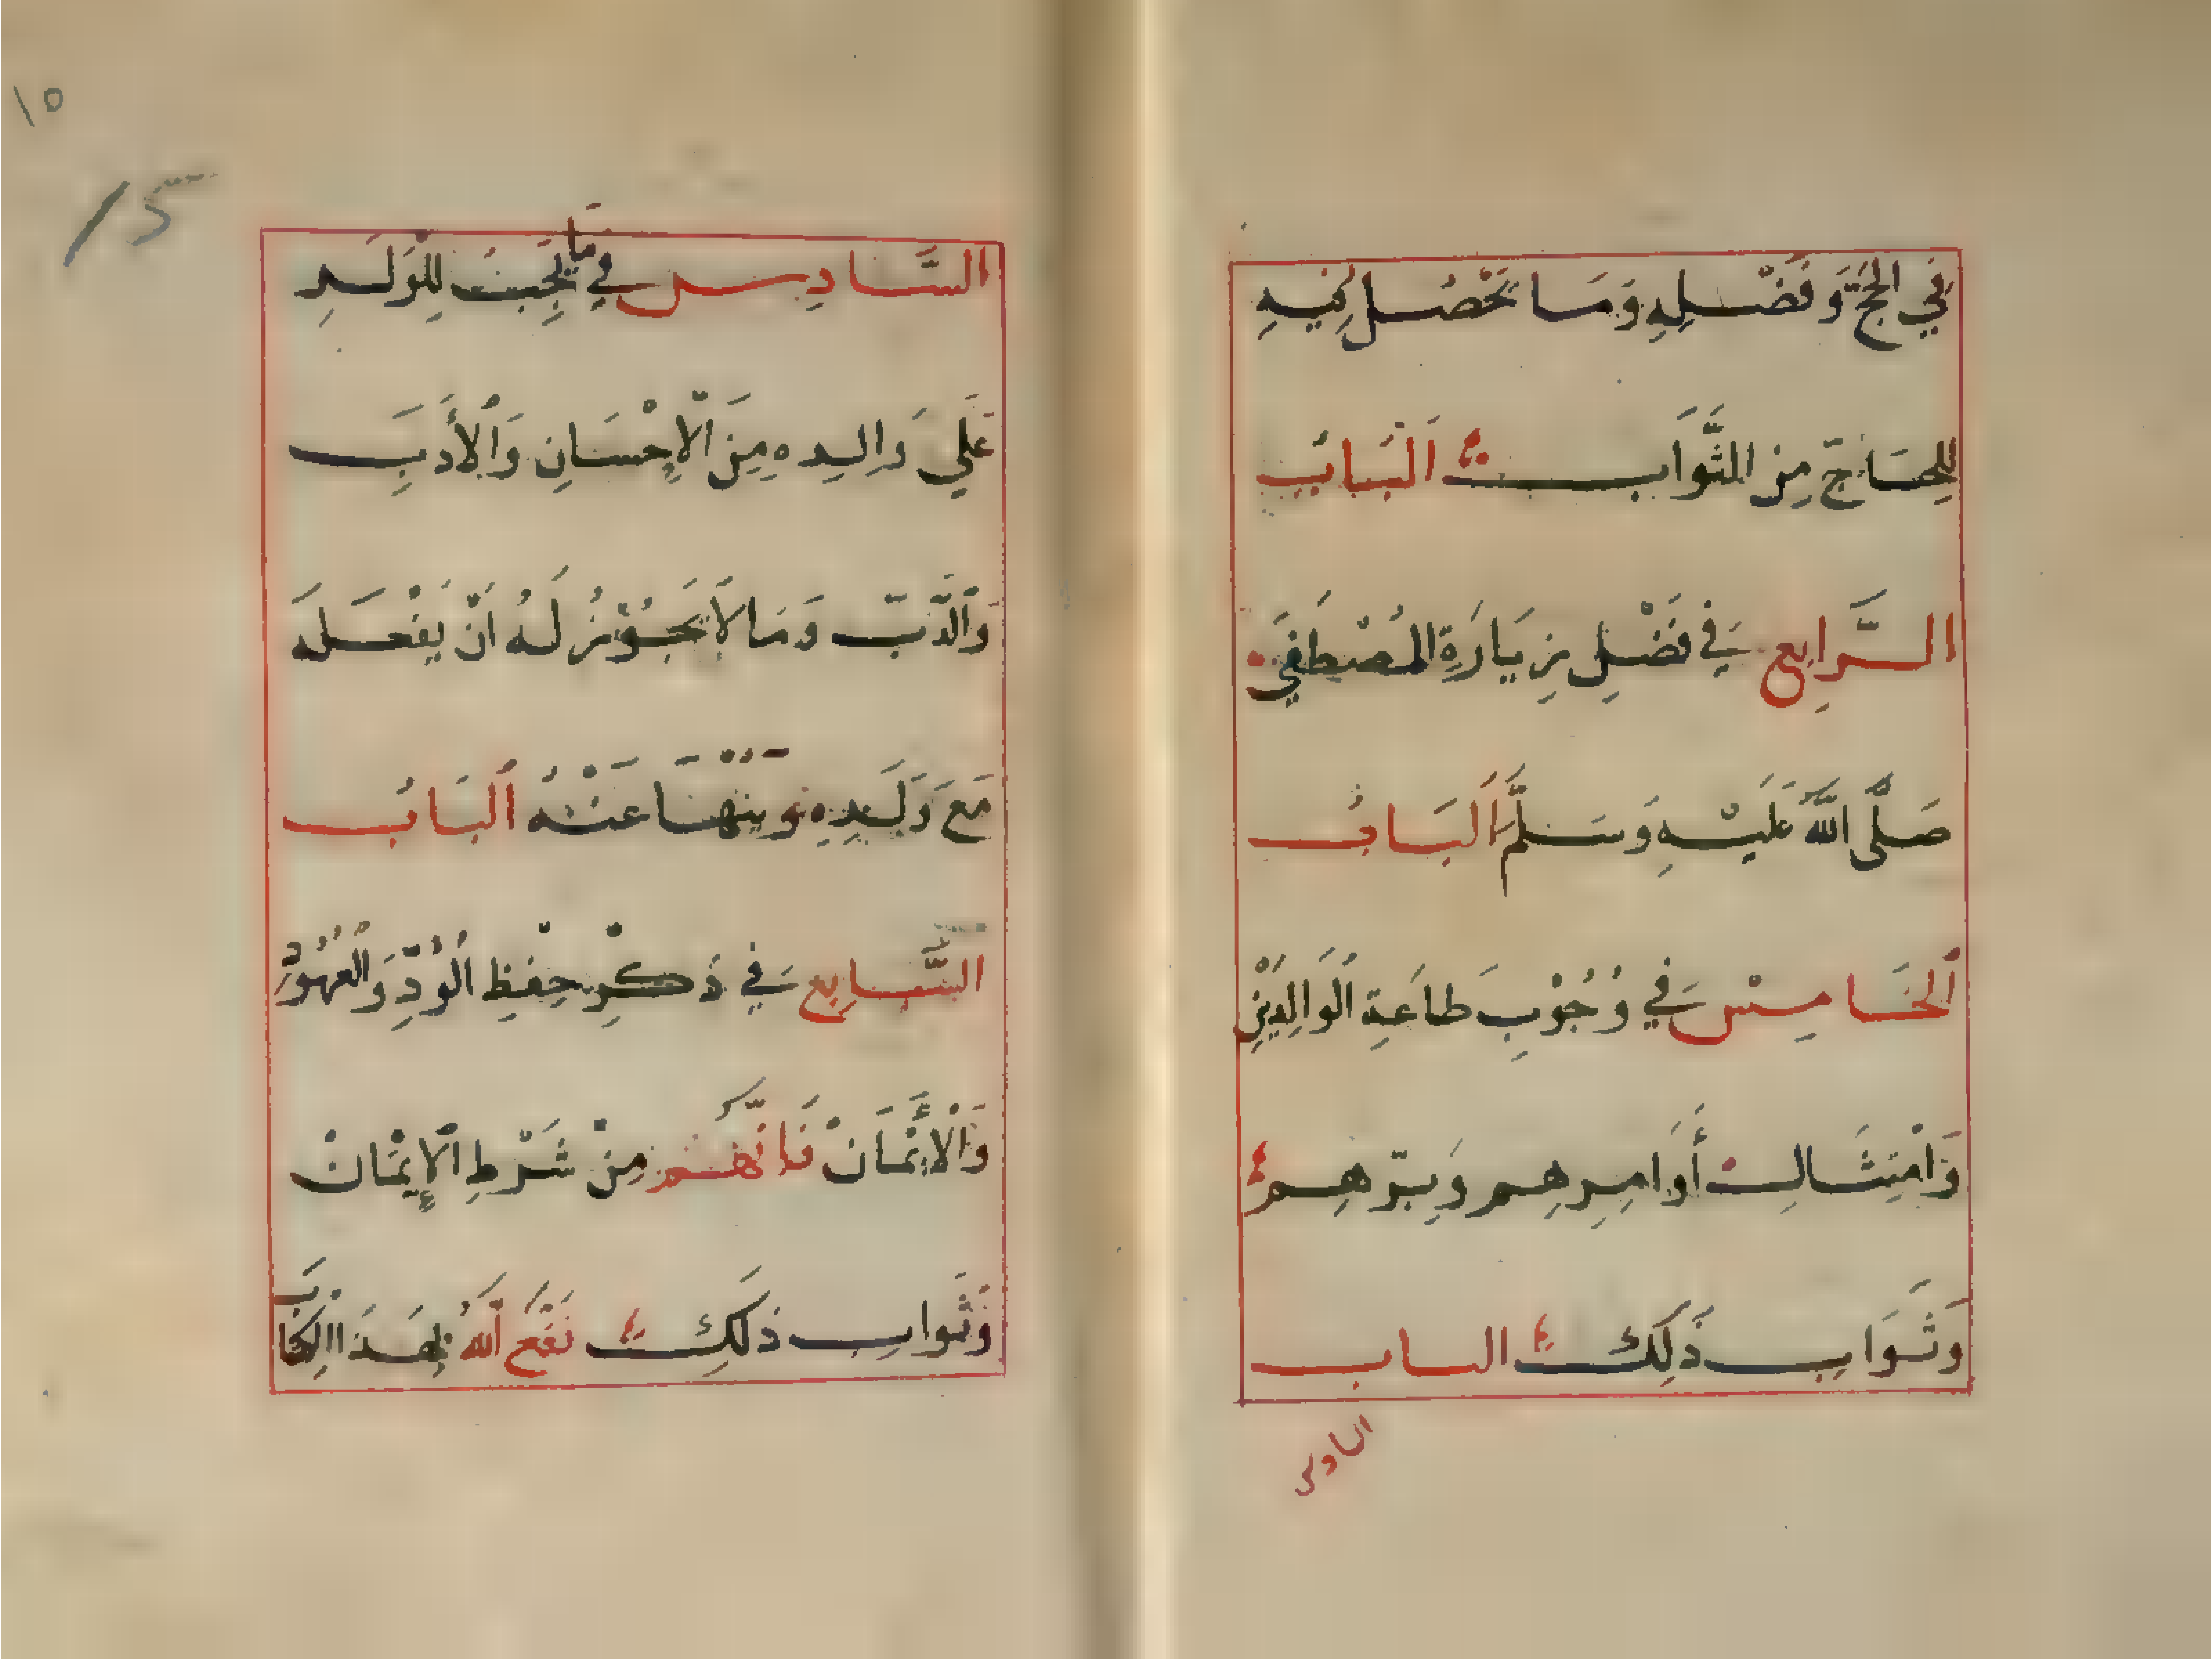 فِي الحَجِّ وَفَضْلِهِ وَمَا يَحْصُل فِيهِ
لِلحَاجّ مِنَ الثَّوَابِ اَلْبَابُ
الرَّابِع فِي فَضْلِ زِيَارَةِ المُصْطَفَي
صَلَّى اللَّهُ عَلَيْهِ وَسَلَّمَ اَلْبَابُ
اَلْخَامِسْ فِي وُجُوْبِ طَاعَةِ الْوَالِدَيْنِ
وَامْتِثَالِ أَوَامِرِهِم وَبِرّهِم
وَثَوَابِ ذَلِكَ الباب
السادس
١٥
15
السَّادِس فِي مَا يَجِبُ لِلْوَلَدِ
عَلَي وَالِدِهِ مِنَ الْاِحْسَانِ وَالْأَدَبِ
وَالذَّبّ وَمَا لَا يَجُوْزُ لَهُ اَنْ يَفْعَلَه
مَعَ وَلَدِهِ وَيَنْهَا عَنْهُ اَلْبَابُ
السَّابِع فِي ذِكْرِ حِفْظِ الْوُدِّ وَالْعُهُوْدِ
وَالْأَيْمَانْ فَانَّهُم مِنْ شَرْطِ الْإِيْمَانْ
وَثَوَابِ ذَلِكَ نَفَعَ اللّهُ بِهَذَا الْكِتَابَ